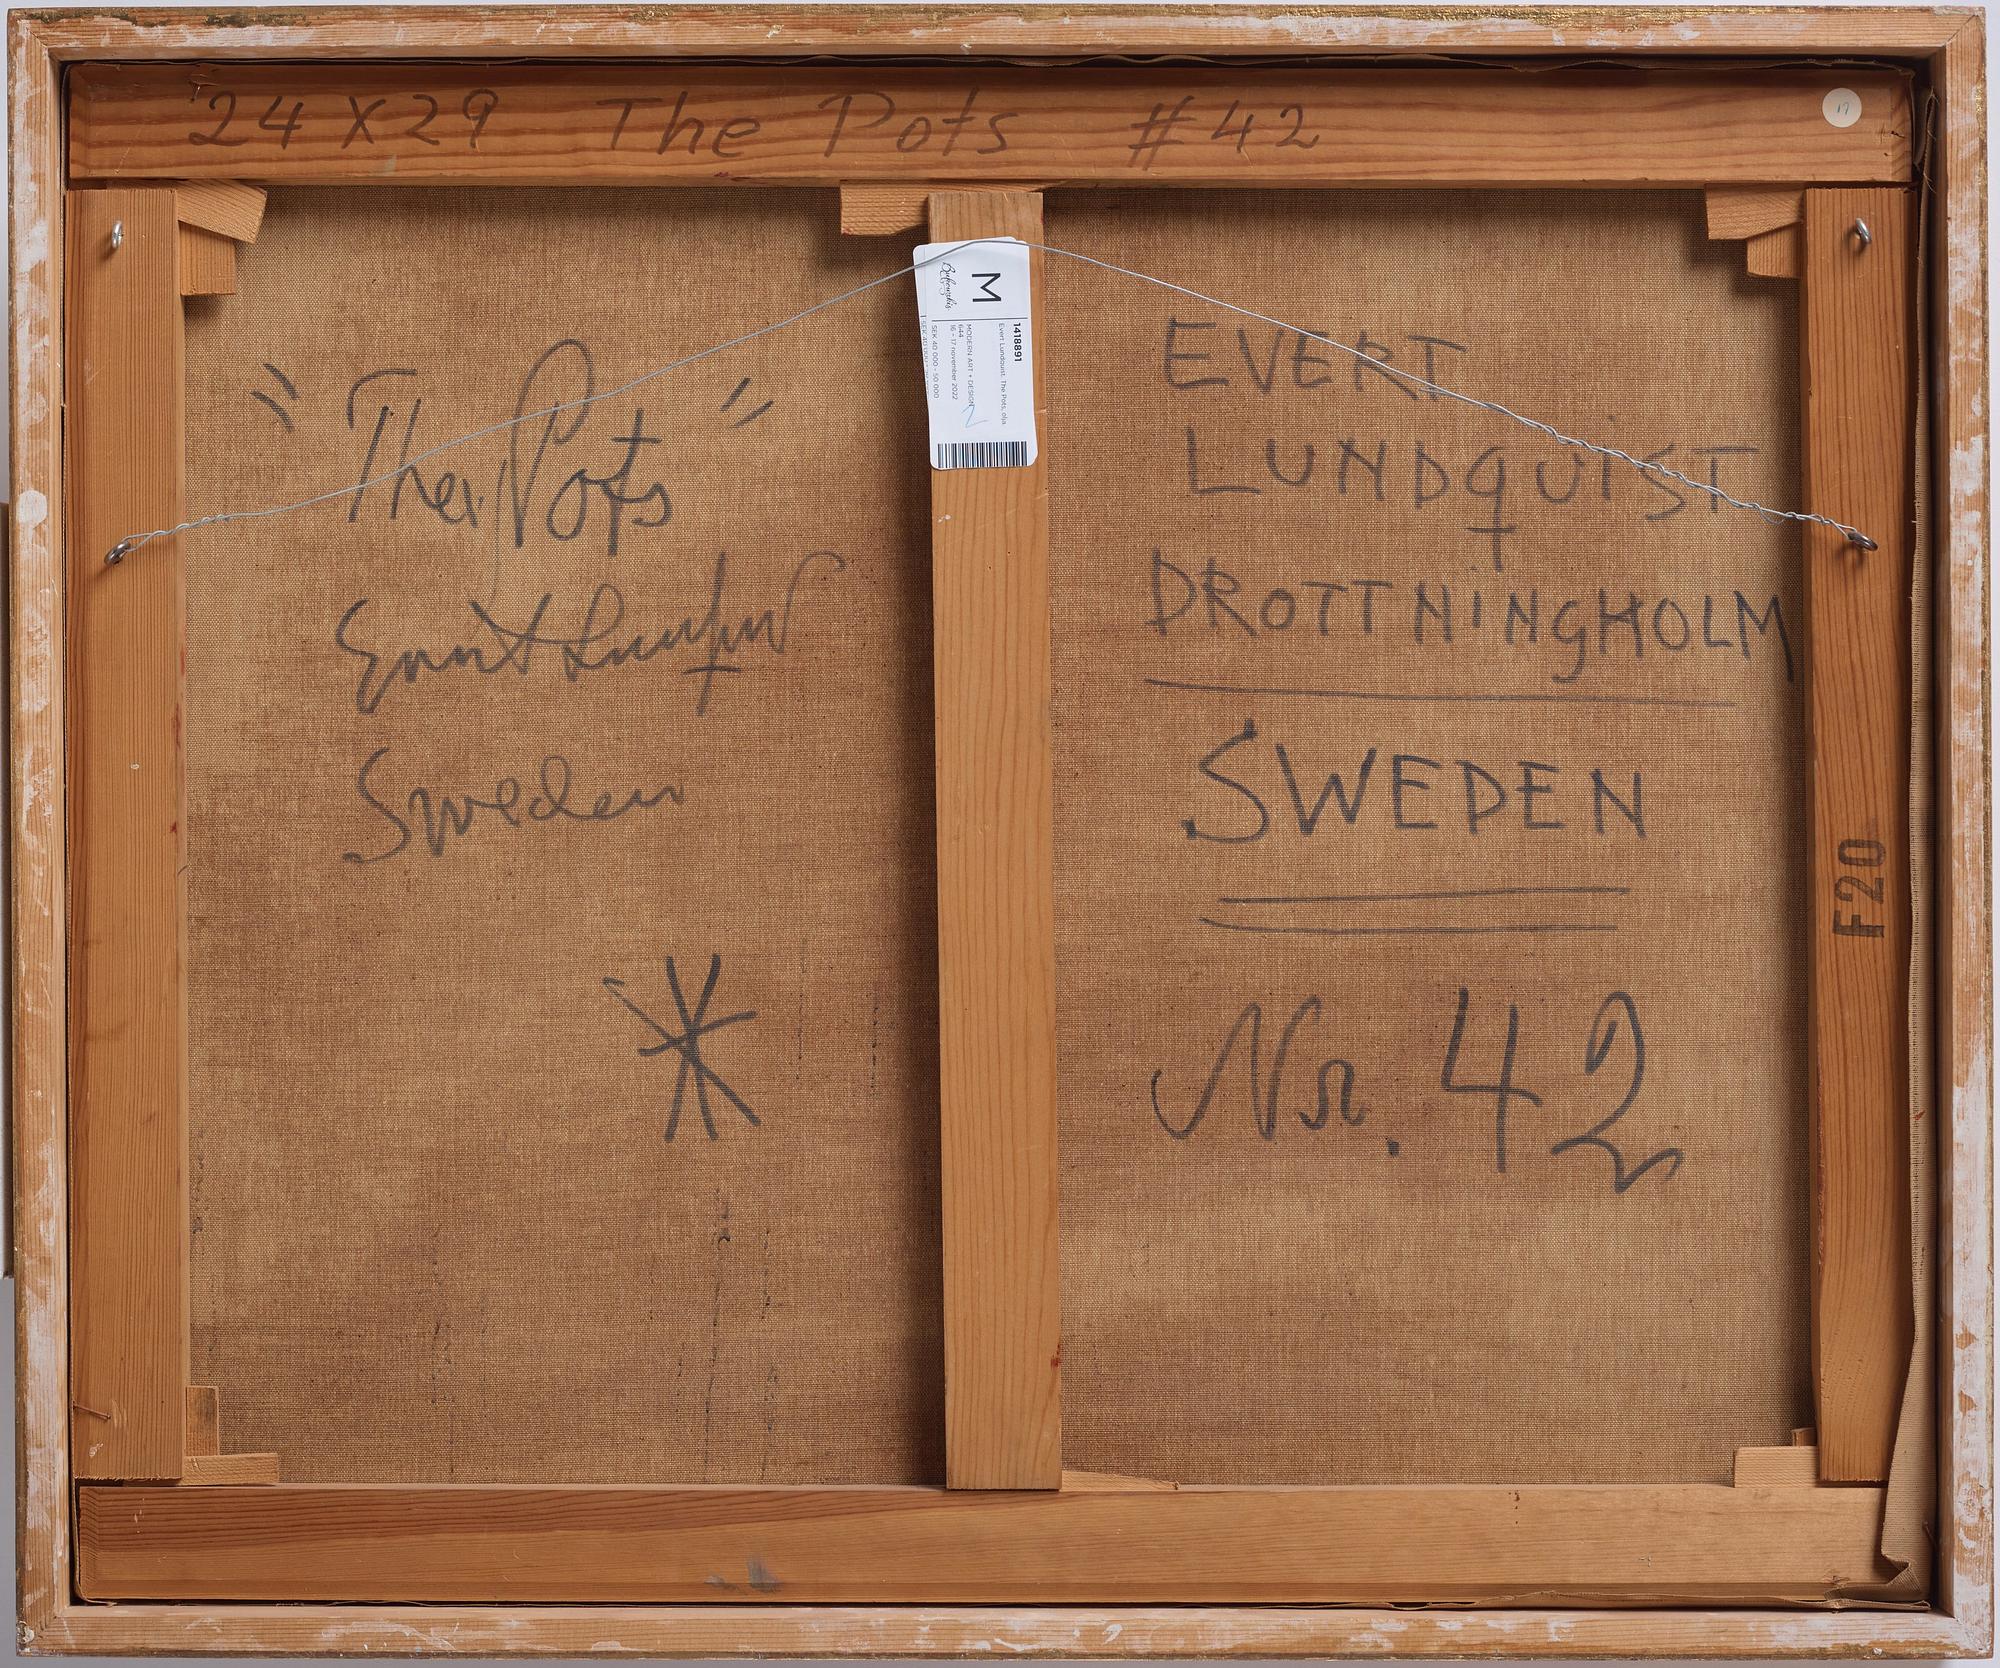 24 X 29 The Pots #42
17
M
Bukowskis
1418891
Evert Lundquist. The Pots, olja.
MODERN ART + DESIGN
644
16 - 17 november 2022
SEK 40 000 - 50 000
"The Pots"
Evert Lundquist
Sweden
EVERT
LUNDQUIST
DROTTNINGHOLM
SWEDEN
Nr. 42
F20